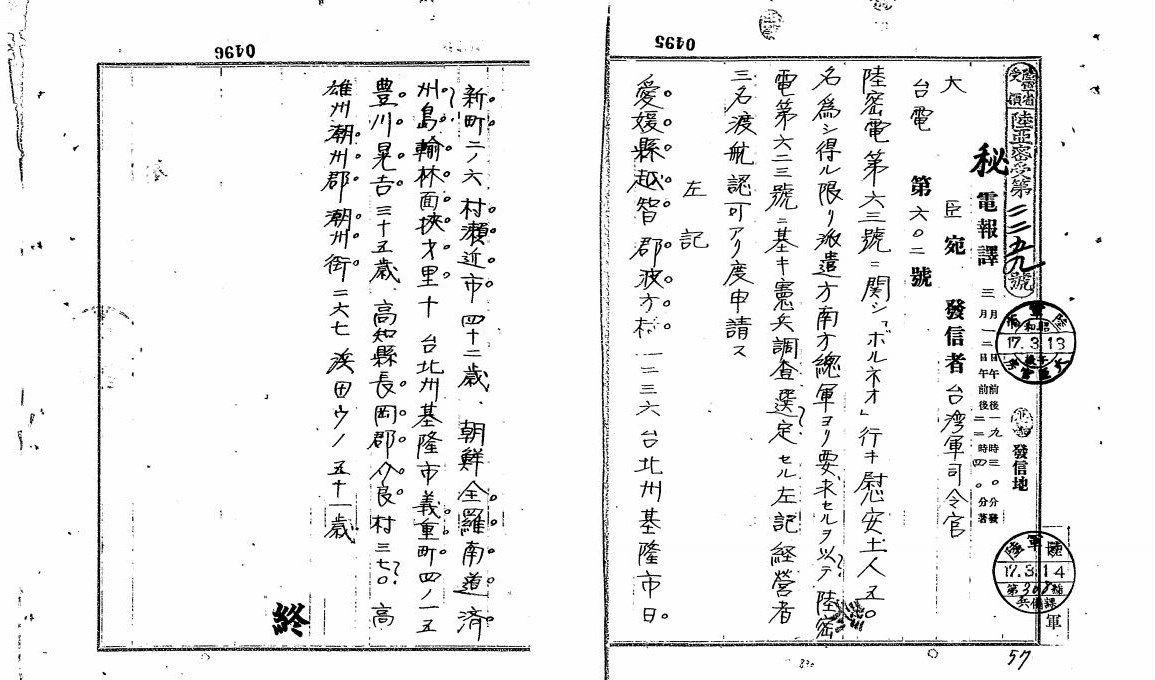 0495
陸軍省受領
陸亞密受第二二五九號
秘
電報譯
三月一二日午前後一九時三〇分發
三月一二日午前後二二時四〇分著
發信地
大臣宛
發信者
台湾軍司令官
台電
第六〇二號
陸密電第六三號ニ関シ「ボルネオ」行キ慰安土人五〇
名爲シ得ル限リ派遣方南方總軍ヨリ要求セルヲ以テ陸密
電第六二三號ニ基キ憲兵調査選定セル左記経營者
三名渡航認可アリ度申請ス
左記
愛媛縣越智郡波方村一二三六台北州基隆市日
17.3.13
17.3.14
第308號
兵備課
軍
57
0496
新町二ノ六 村瀬近市 四十二歳、朝鮮全羅南道済
州島翰林面挾才里十 台北州基隆市義重町四ノ一五
豊川晃吉 三十五歳 高知縣長岡郡介良村三七〇 高
雄州潮州郡潮州街二六七 浜田ウノ 五十一歳
終